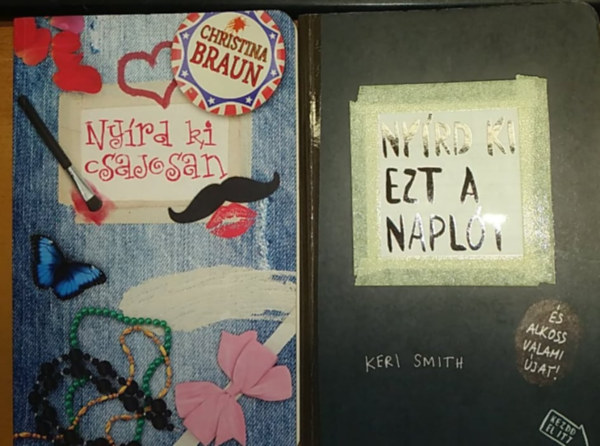 CHRISTINA
BRAUN
Nyírd ki
csajosan
NYÍRD KI
EZT A
NAPLÓT
KERI SMITH
ÉS
ALKOSS
VALAMI
ÚJAT!
KEZDD
EL ITT